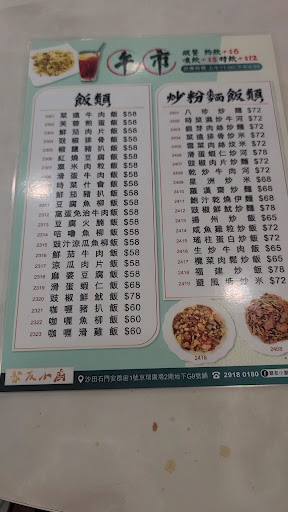 午市
跟餐 熱飲+$5
凍飲+$8 特飲+$12
飯類
2301 菜遠牛肉飯 $58
2302 芙蓉煎蛋飯 $58
2303 鮮茄肉片飯 $58
2305 豉椒排骨飯 $58
粟米肉粒飯 $58
紅燒豆腐飯 $58
滑蛋牛肉飯 $58
時菜什會飯 $58
鮮茄豬扒飯 $58
豆腐魚柳飯 $58
窩蛋免治牛肉飯 $58
豆腐火腩飯 $58
咕嚕魚柳飯 $58
2315 豉汁涼瓜魚柳飯 $58
2316 鮮茄牛肉飯 $58
2317 涼瓜肉片飯 $58
2318 麻婆豆腐飯 $58
2319 滑蛋蝦仁飯 $68
2320 豉椒鮮魷飯 $68
2321 咖喱豬扒飯 $60
2322 咖喱魚柳飯 $60
2323 咖喱滑雞飯 $60
炒粉麵飯類
八珍炒麵 $72
時菜濕炒牛河 $72
銀芽肉絲炒麵 $72
菜遠排骨炒米 $72
雪菜肉絲炆米 $72
滑蛋蝦仁炒河 $78
豉椒肉片炒麵 $72
乾炒牛河 $72
星洲炒米 $68
羅漢齋炒麵 $68
鮑汁乾燒伊麵 $68
豉椒鮮魷炒麵 $78
揚州炒飯 $65
咸魚雞粒炒飯 $72
瑤柱蛋白炒飯 $72
生炒牛肉飯 $65
2417 欖菜肉鬆炒飯 $65
2418 福建炒飯 $78
2419 避風塘炒米 $72
2418
2408
沙田石門安群街1號京瑞廣場2期地下G8號舖
2918 0180